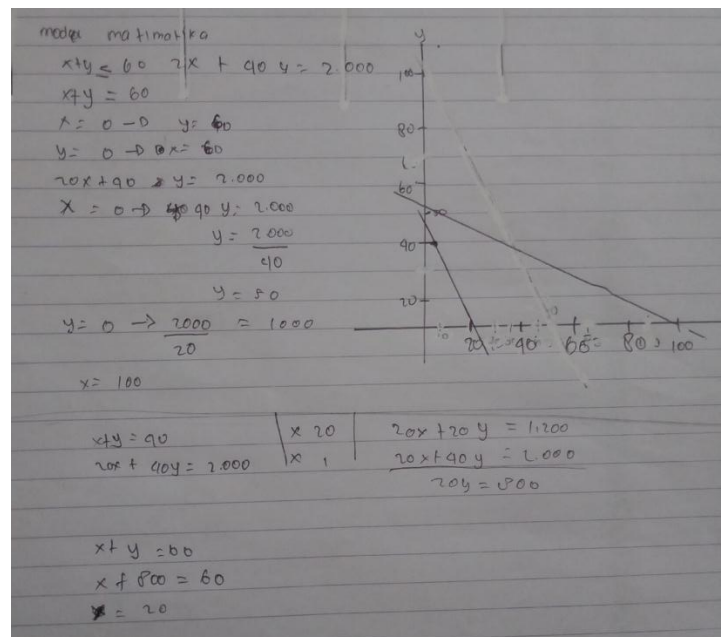 model matimatika
x+y ≤ 60 2x + 40 y = 2.000
x+y = 60
x = 0 → y = 60
y = 0 → x = 60
20x + 40 y = 2.000
x = 0 → 40 y = 2.000
y = 2000
40
y = 50
y = 0 → 2000 = 1000
20
x = 100
x+y = 90 | x 20 | 20x + 20 y = 1.200
20x + 40y = 2.000 | x 1 | 20x + 40 y = 2.000
20y = 800
x + y = 60
x + 800 = 60
x = 20
y
100
80
60
50
40
20
20 40 60 80 100